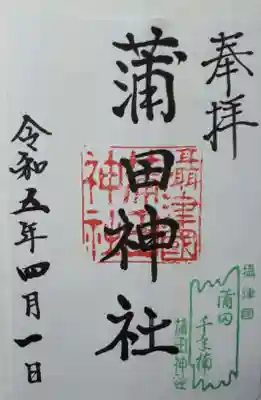 奉拝
蒲田神社
令和五年四月一日
攝津國
蒲田
神社
攝津国
蒲田
蒲田神社